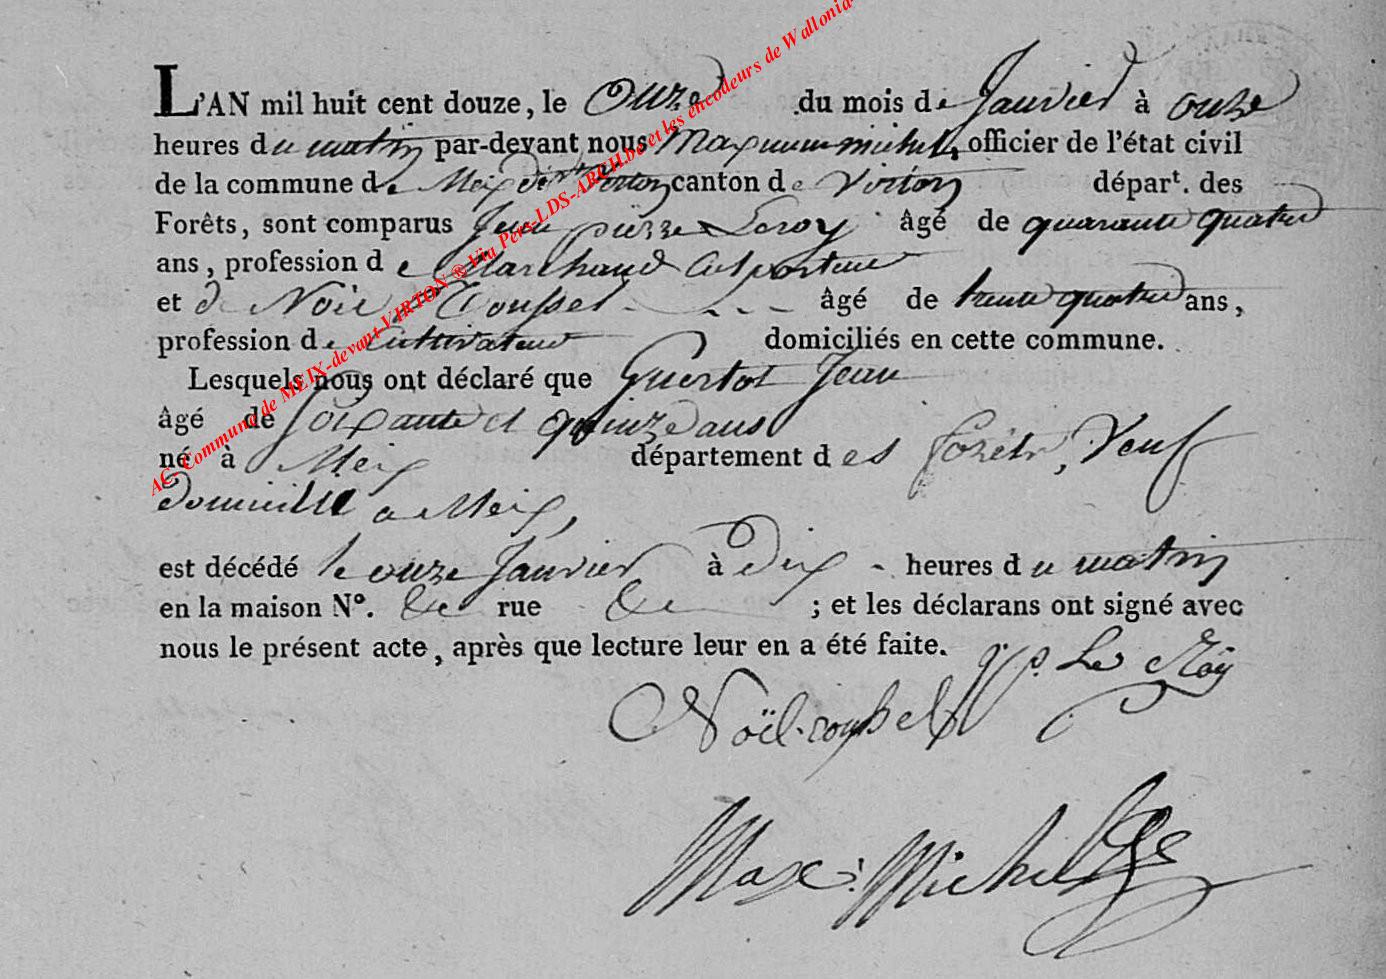 L'AN mil huit cent douze, le Onze du mois de Janvier à onze
heures du matin par-devant nous Maximum michel, officier de l'état civil
de la commune de Meix Dt Virton canton de Virton départ. des
Forêts, sont comparus Jean pierre Leroy âgé de quarante quatre
ans, profession de Marchand Colporteur
et de Noël Roussel - - - âgé de trente quatre ans,
profession de Cultivateur domiciliés en cette commune.
Lesquels nous ont déclaré que Guertot Jean
âgé de Soixante et quinze ans
né à Meix département des forêts, Veuf
Domicilié a Meix,
est décédé le onze Janvier à Dix - heures du matin
en la maison Nº. &c rue &c ; et les déclarans ont signé avec
nous le présent acte, après que lecture leur en a été faite.
j p. Le Roÿ
Noël-roussel
Max: Michel
AC. Commune de MEIX-devant-VIRTON ® Via Pers-LDS-ARCH.be et les encodeurs de Wallonia-